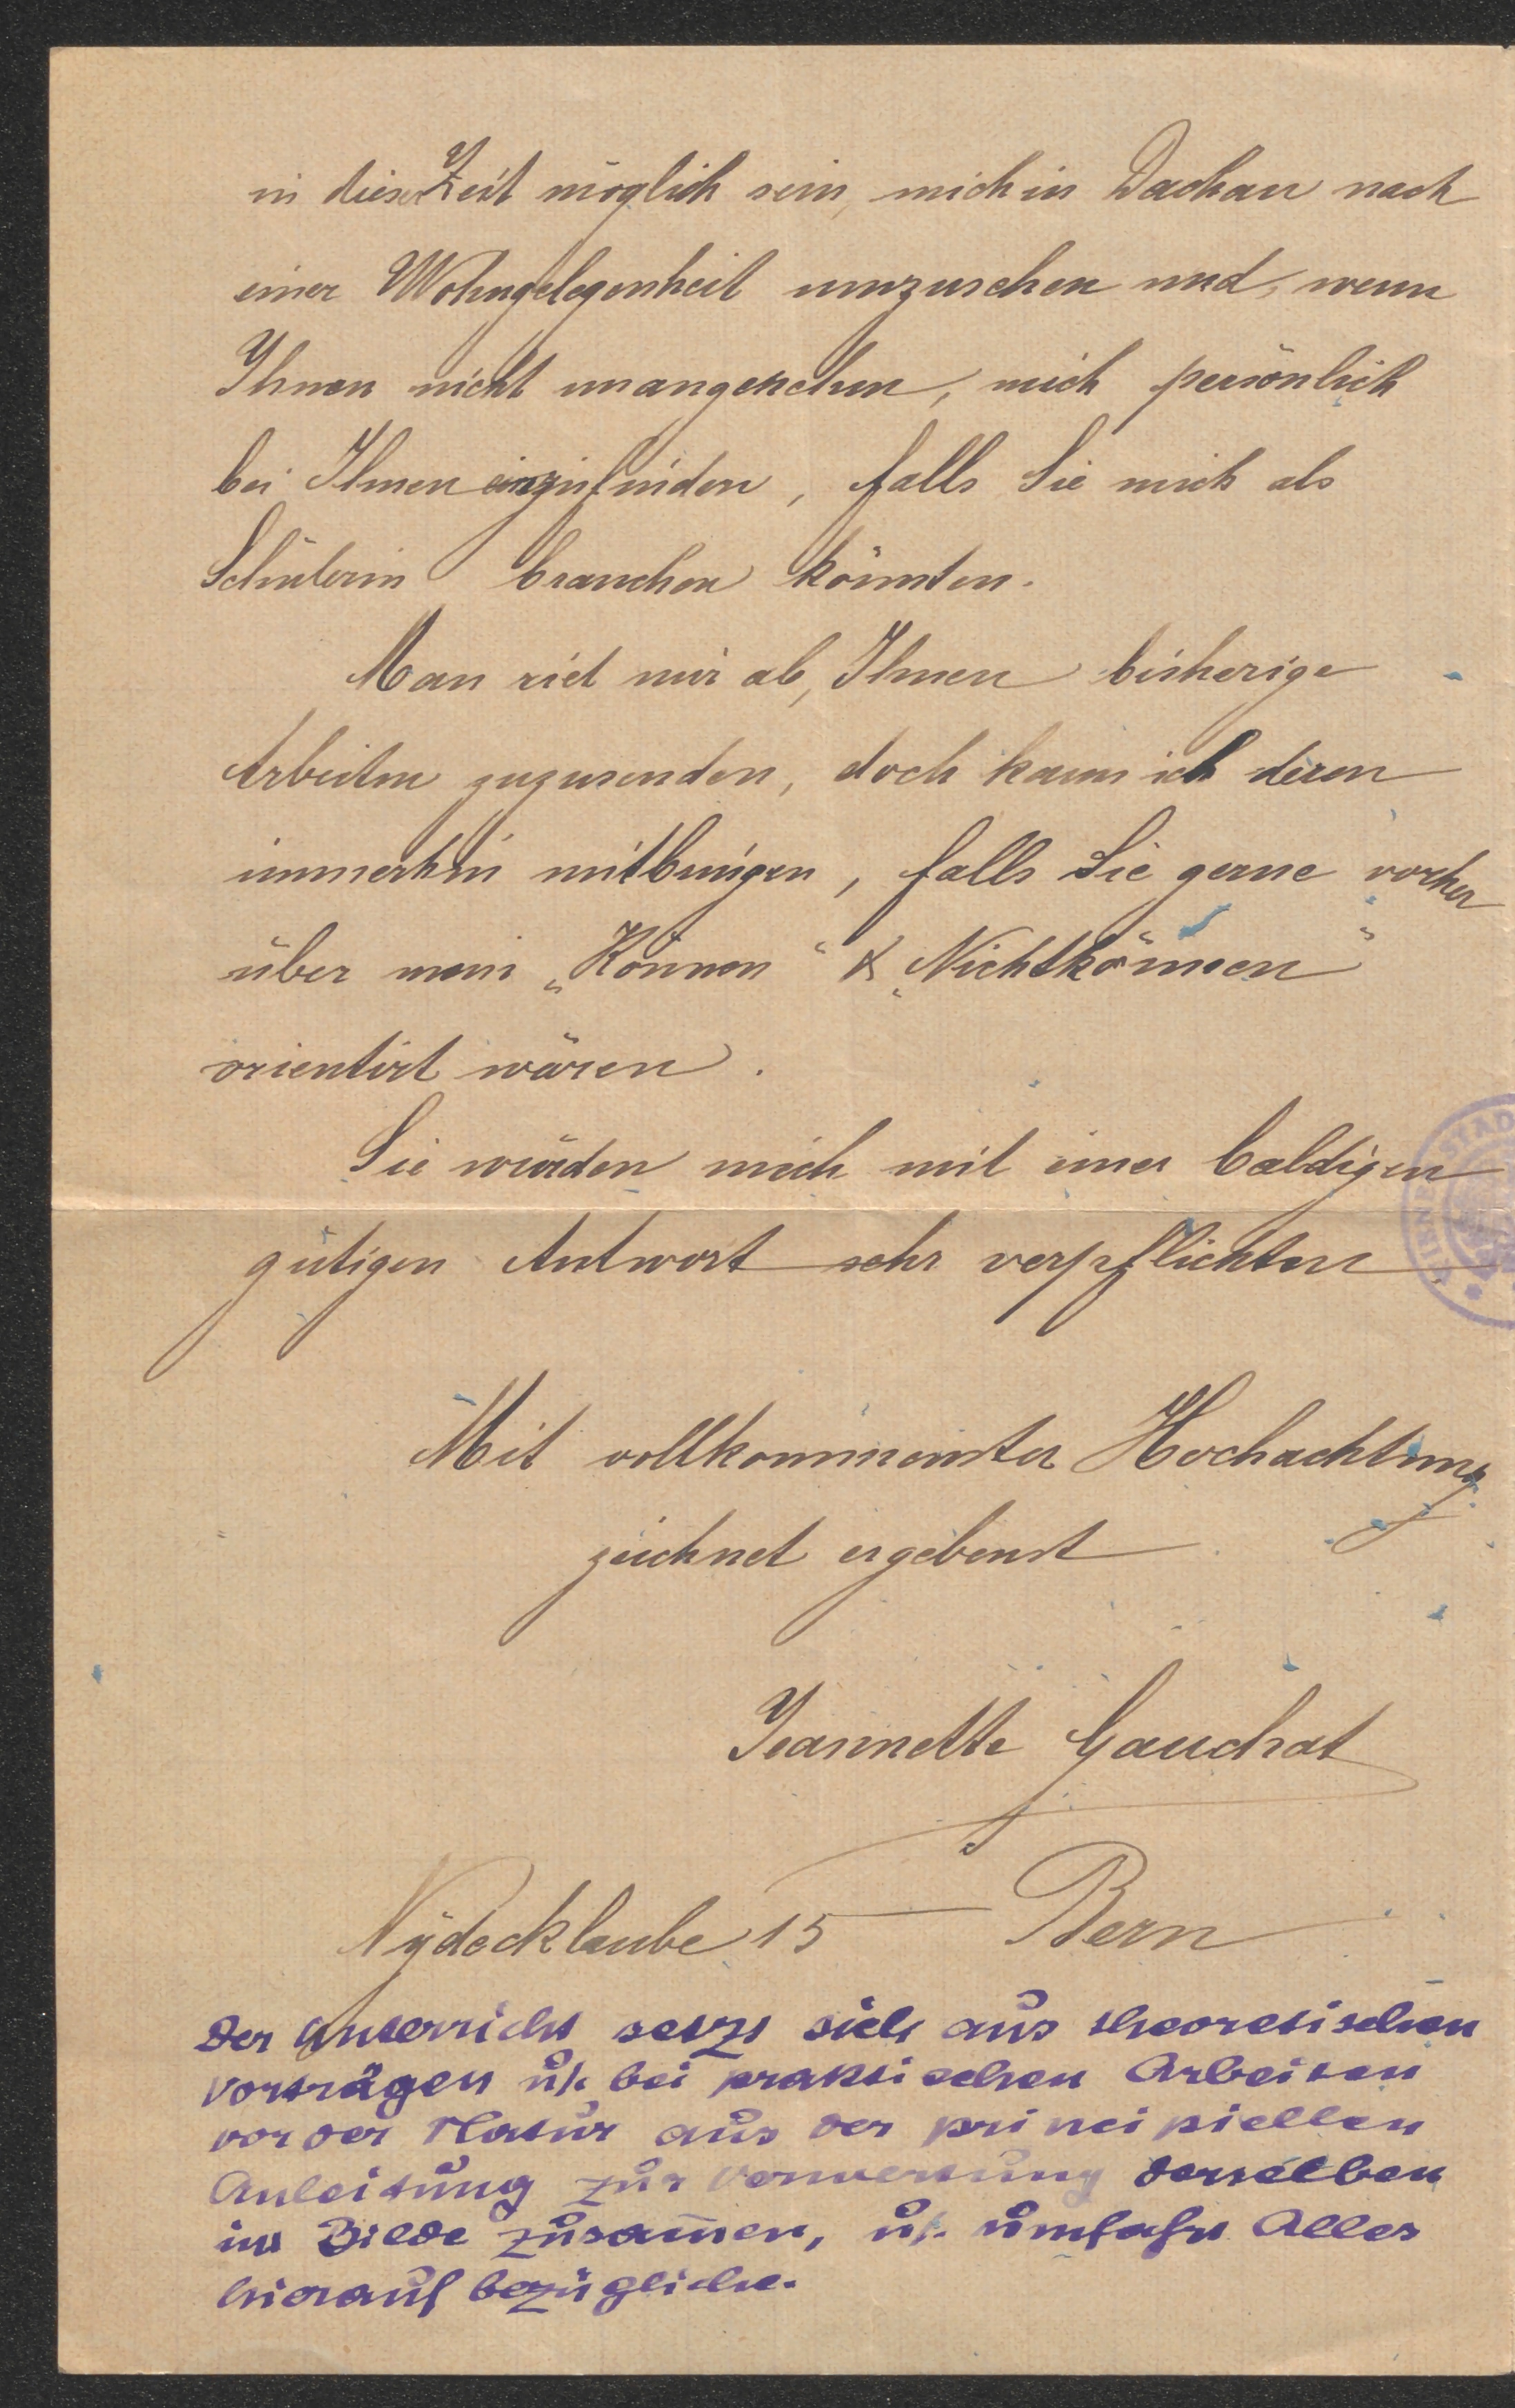 in dieser Zeit möglich sein, mich in Dachau nach
einer Wohngelegenheit umzusehen und, wenn
Ihnen nicht unangenehm, mich persönlich
bei Ihnen einzufinden, falls Sie mich als
Schülerin brauchen könnten.
Man riet mir ab, Ihnen bisherige
Arbeiten zuzusenden, doch kann ich deren
immerhin mitbringen, falls Sie gerne vorher
über mein „Können“ & „Nichtkönnen“
orientirt wären.
Sie würden mich mit einer baldigen
gütigen Antwort sehr verpflichten
Mit vollkommenster Hochachtung
zeichnet ergebenst
Jeannette Gauchat
Nydecklaube 15 — Bern
WIENE STAD
Der Unterricht setzt sich aus theoretischen
Vorträgen u. bei praktischen Arbeiten
vor der Natur aus der principiellen
Anleitung zur Verwertung derselben
im Bilde zusam̄en, u. umfaßt Alles
hierauf bezügliche.